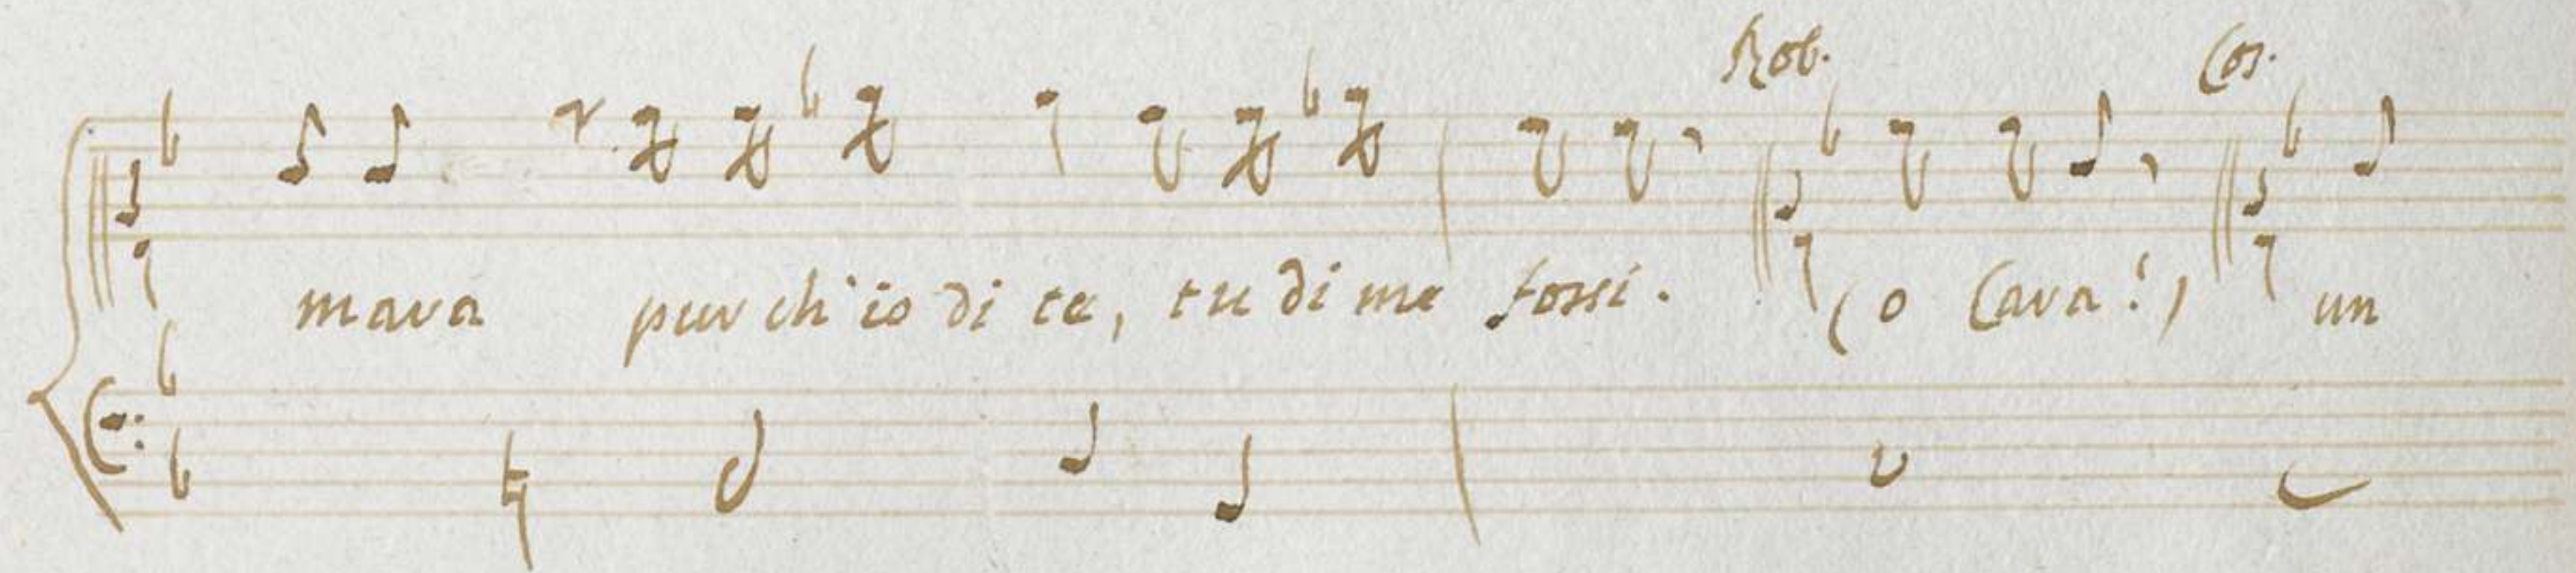 Rob. Cos.
mara pur ch'io di te, tu di me fossi. (o Cara!) un